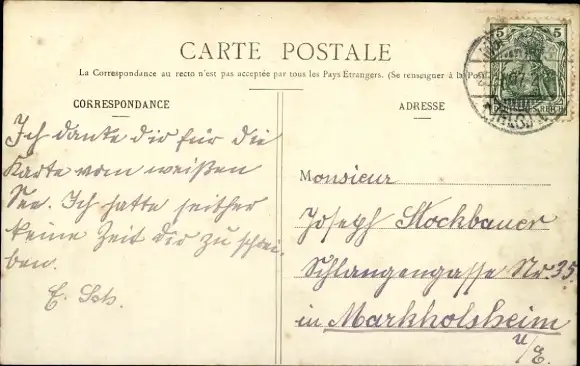 CARTE POSTALE
La Correspondance au recto n'est pas acceptée par tous les Pays Etrangers. (Se renseigner à la
CORRESPONDANCE
ADRESSE
Ich danke dir für die
Karte vom weißen
See. Ich hatte seither
keine Zeit dir zu schrei-
ben.
E. Sch.
Monsieur
Joseph Stockbauer
Schlangengasse Nr. 35
in Markholsheim
u/E.
5 5
REICH